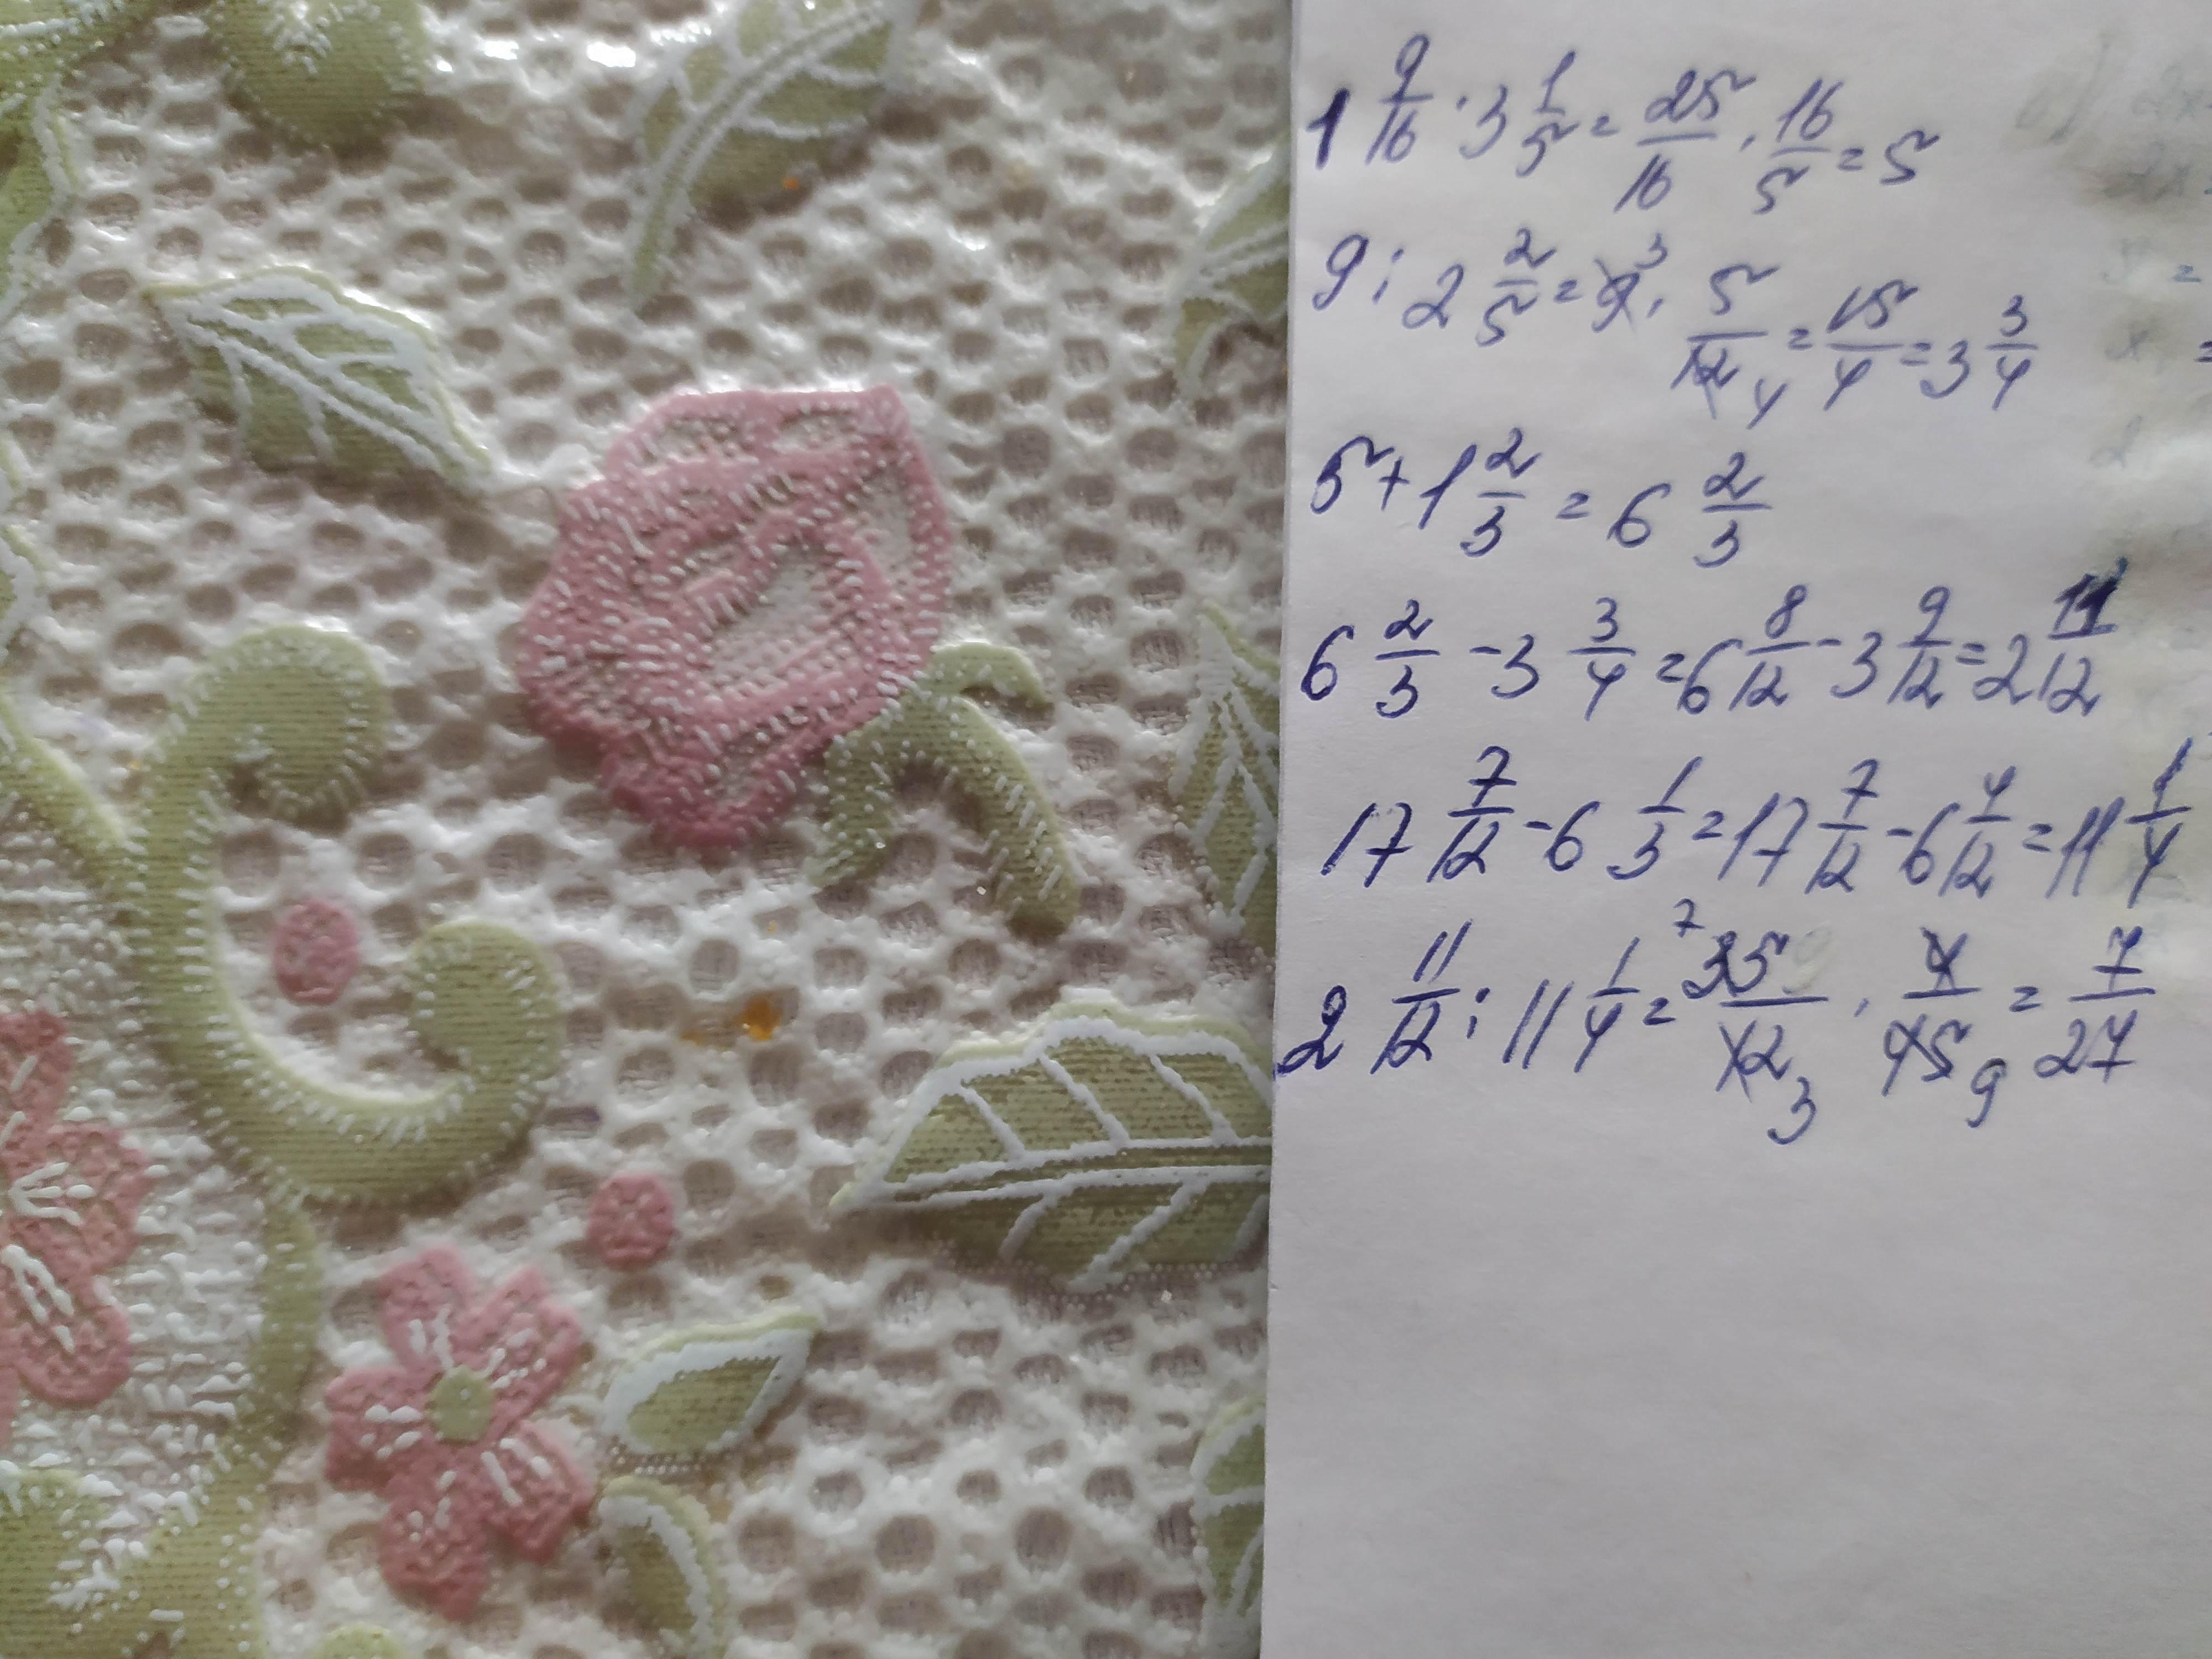 1 9/16 · 3 1/5 = 25/16 · 16/5 = 5
9 : 2 2/5 = 9 3 · 5/12 4 = 15/4 = 3 3/4
5 + 1 2/3 = 6 2/3
6 2/3 - 3 3/4 = 6 8/12 - 3 9/12 = 2 11/12
17 7/12 - 6 1/3 = 17 7/12 - 6 4/12 = 11 1/4
2 11/12 : 11 1/4 = 7 35/12 3 · 4/45 9 = 7/27